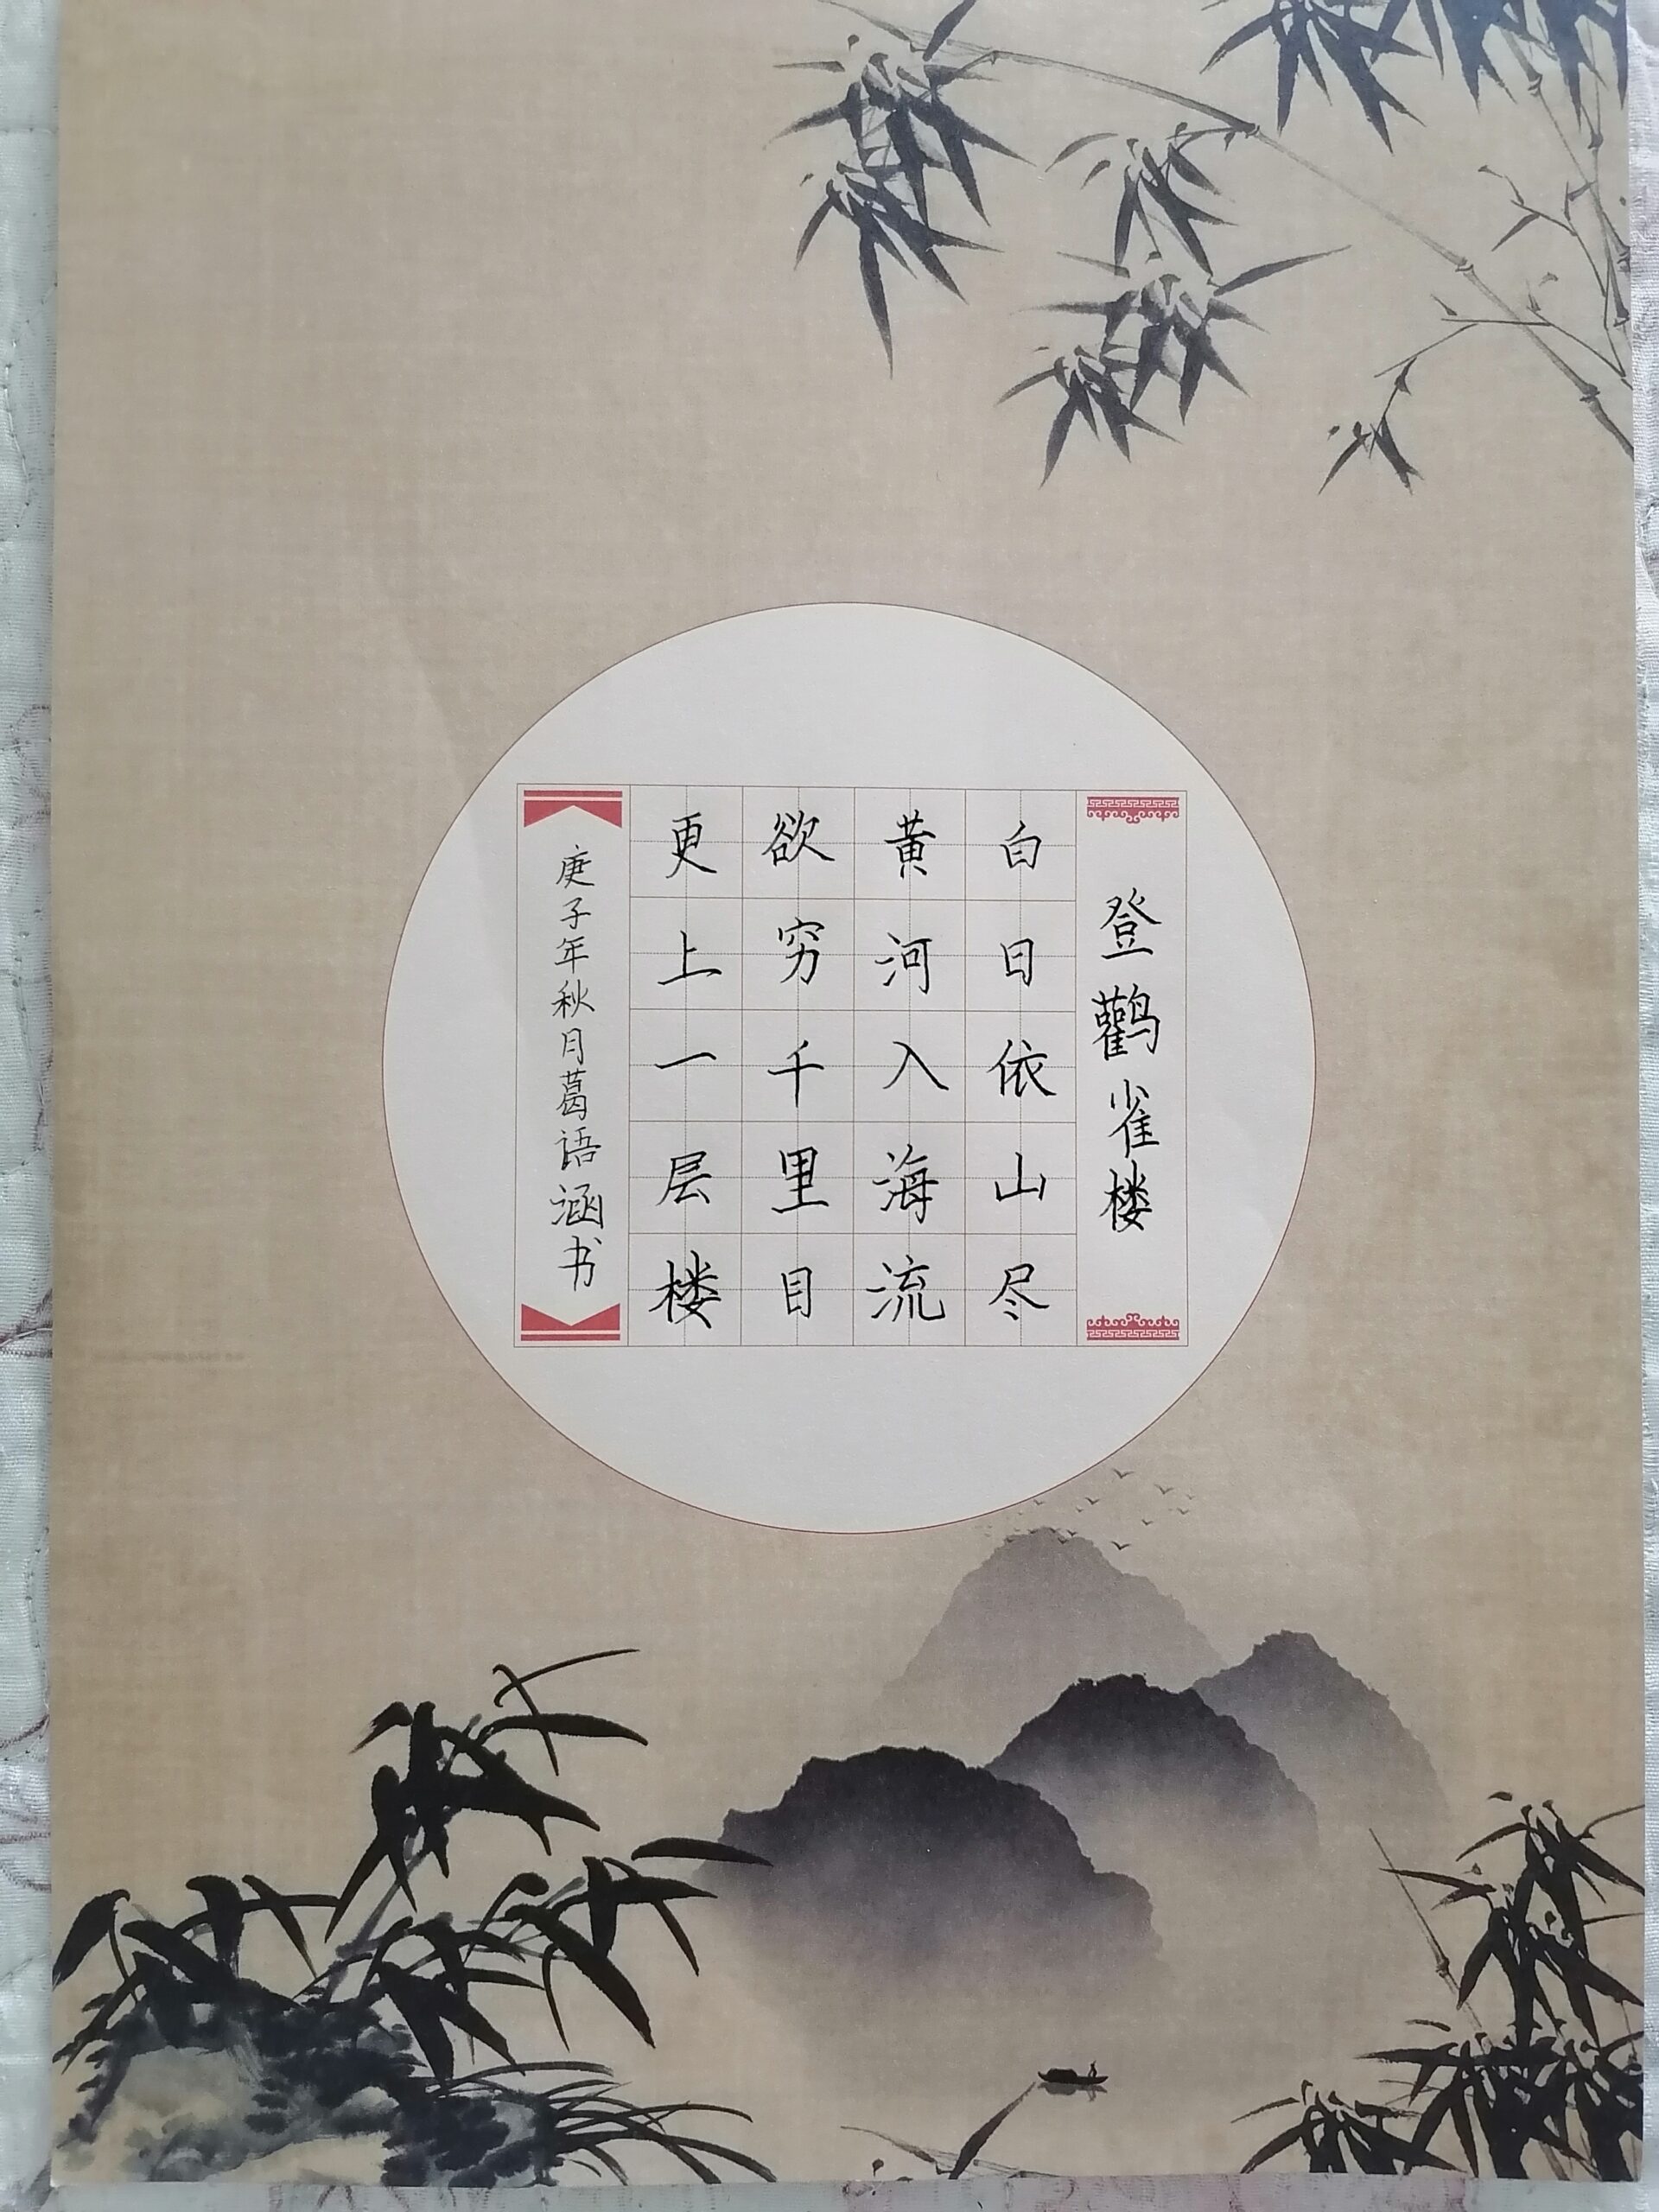 登鹳雀楼
白日依山尽
黄河入海流
欲穷千里目
更上一层楼
庚子年秋月葛语涵书